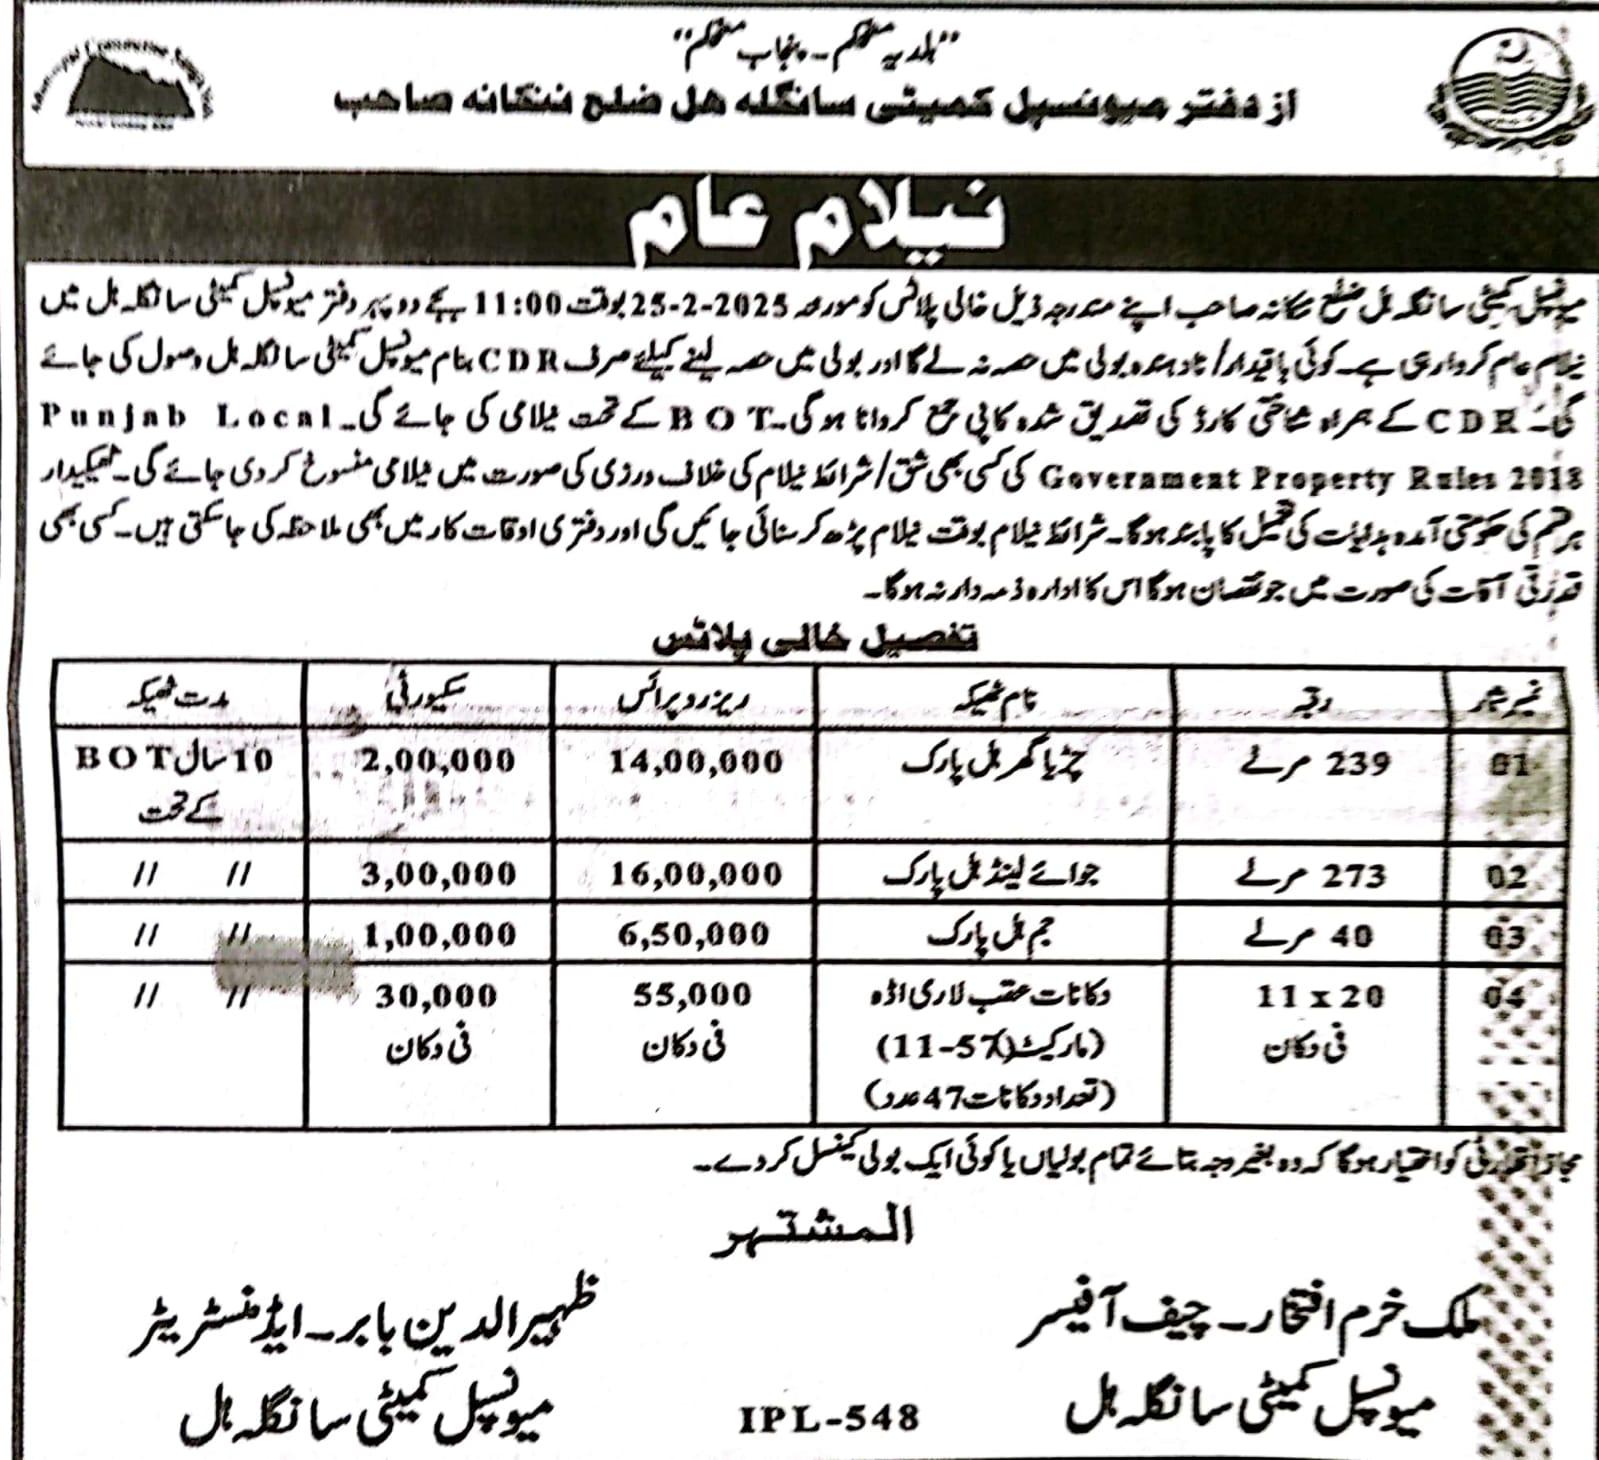 ”بلدیہ مستحکم۔ پنجاب مستحکم“
از دفتر میونسپل کمیٹی سانگلہ ہل ضلع ننکانہ صاحب
نیلام عام
میونسپل کمیٹی سانگلہ ہل ضلع ننکانہ صاحب اپنے مندرجہ ذیل خالی پلاٹس کو مورخہ 25-2-2025 بوقت 11:00 بجے دوپہر دفتر میونسپل کمیٹی سانگلہ ہل میں
نیلام عام کروا رہی ہے۔ کوئی باقیدار/ نادہندہ بولی میں حصہ نہ لے گا اور بولی میں حصہ لینے کیلئے صرف CDR بنام میونسپل کمیٹی سانگلہ ہل وصول کی جائے
گی۔ CDR کے ہمراہ شناختی کارڈ کی تصدیق شدہ کاپی جمع کروانا ہو گی۔ BOT کے تحت نیلامی کی جائے گی۔ Punjab Local
Government Property Rules 2018 کی کسی بھی شق/ شرائط نیلام کی خلاف ورزی کی صورت میں نیلامی منسوخ کر دی جائے گی۔ ٹھیکیدار
ہر قسم کی حکومتی آمدہ ہدایات کی تعمیل کا پابند ہوگا۔ شرائط نیلام بوقت نیلام پڑھ کر سنائی جائیں گی اور دفتری اوقات کار میں بھی ملاحظہ کی جا سکتی ہیں۔ کسی بھی
قدرتی آفات کی صورت میں جو نقصان ہوگا اس کا ادارہ ذمہ دار نہ ہوگا۔
تفصیل خالی پلاٹس
نمبر شمار رقبہ نام ٹھیکہ ریزرو پرائس سکیورٹی مدت ٹھیکہ
01 239 مرلے چڑیا گھر ہل پارک 14,00,000 2,00,000 10 سال BOT
کے تحت
02 273 مرلے جوائے لینڈ ہل پارک 16,00,000 3,00,000 // //
03 40 مرلے جم ہل پارک 6,50,000 1,00,000 // //
04 11 x 20 دکانات عقب لاری اڈہ 55,000 30,000 // //
فی دکان (مارکیٹ)(11-57) فی دکان فی دکان
(تعداد دکانات 47 عدد)
مجاز اتھارٹی کو اختیار ہوگا کہ وہ بغیر وجہ بتائے تمام بولیاں یا کوئی ایک بولی کینسل کر دے۔
المشتہر
ملک خرم افتخار۔ چیف آفیسر ظہیر الدین بابر۔ ایڈمنسٹریٹر
میونسپل کمیٹی سانگلہ ہل IPL-548 میونسپل کمیٹی سانگلہ ہل